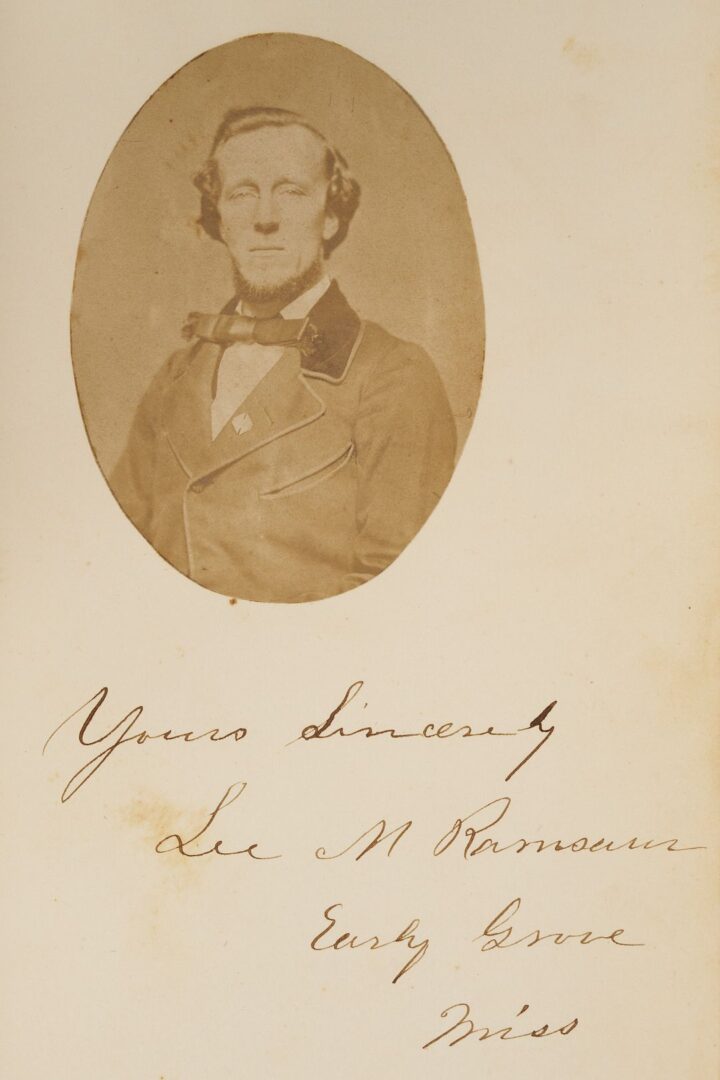 Yours Sincerely
Lee M Ramsaur
Early Grove
Miss